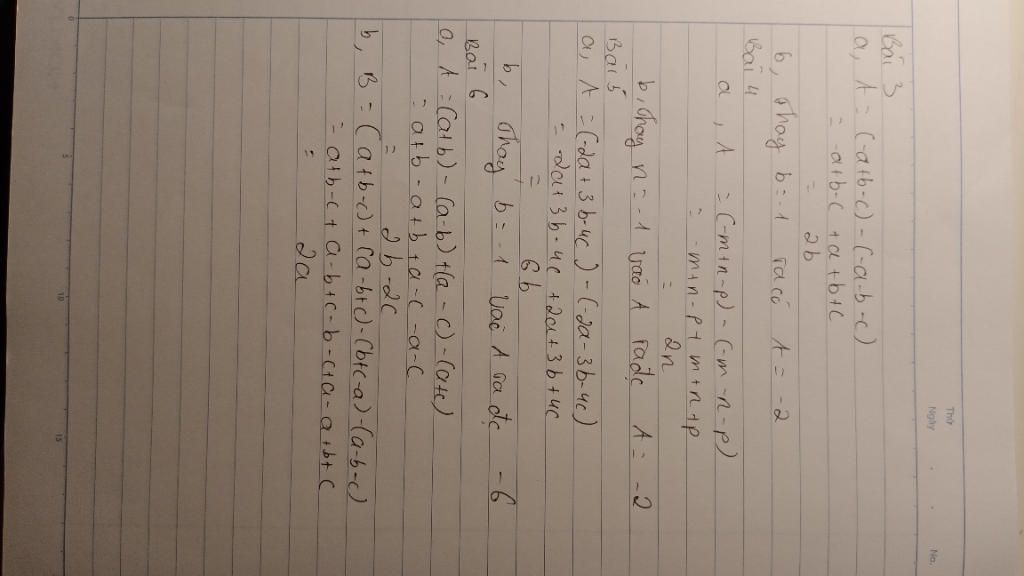 Thứ
Ngày
No.
Bài 3
a, A = (-a+b-c) - (-a-b-c)
= -a+b-c+a+b+c
= 2b
b, Thay b=-1 ta có A = -2
Bài 4
a, A = (-m+n-p) - (-m-n-p)
= -m+n-p+m+n+p
= 2n
b, Thay n = -1 vào A ta đc A = -2
Bài 5
a, A = (-2a+3b-4c) - (-2a-3b-4c)
= -2a+3b-4c+2a+3b+4c
= 6b
b, Thay b = -1 vào A ta đc -6
Bài 6
a, A = (a+b) - (a-b) + (a-c) - (a+c)
= a+b-a+b+a-c-a-c
= 2b-2c
b, B = (a+b-c) + (a-b+c) - (b+c-a) - (a-b-c)
= a+b-c+a-b+c-b-c+a-a+b+c
= 2a
0
5
10
15